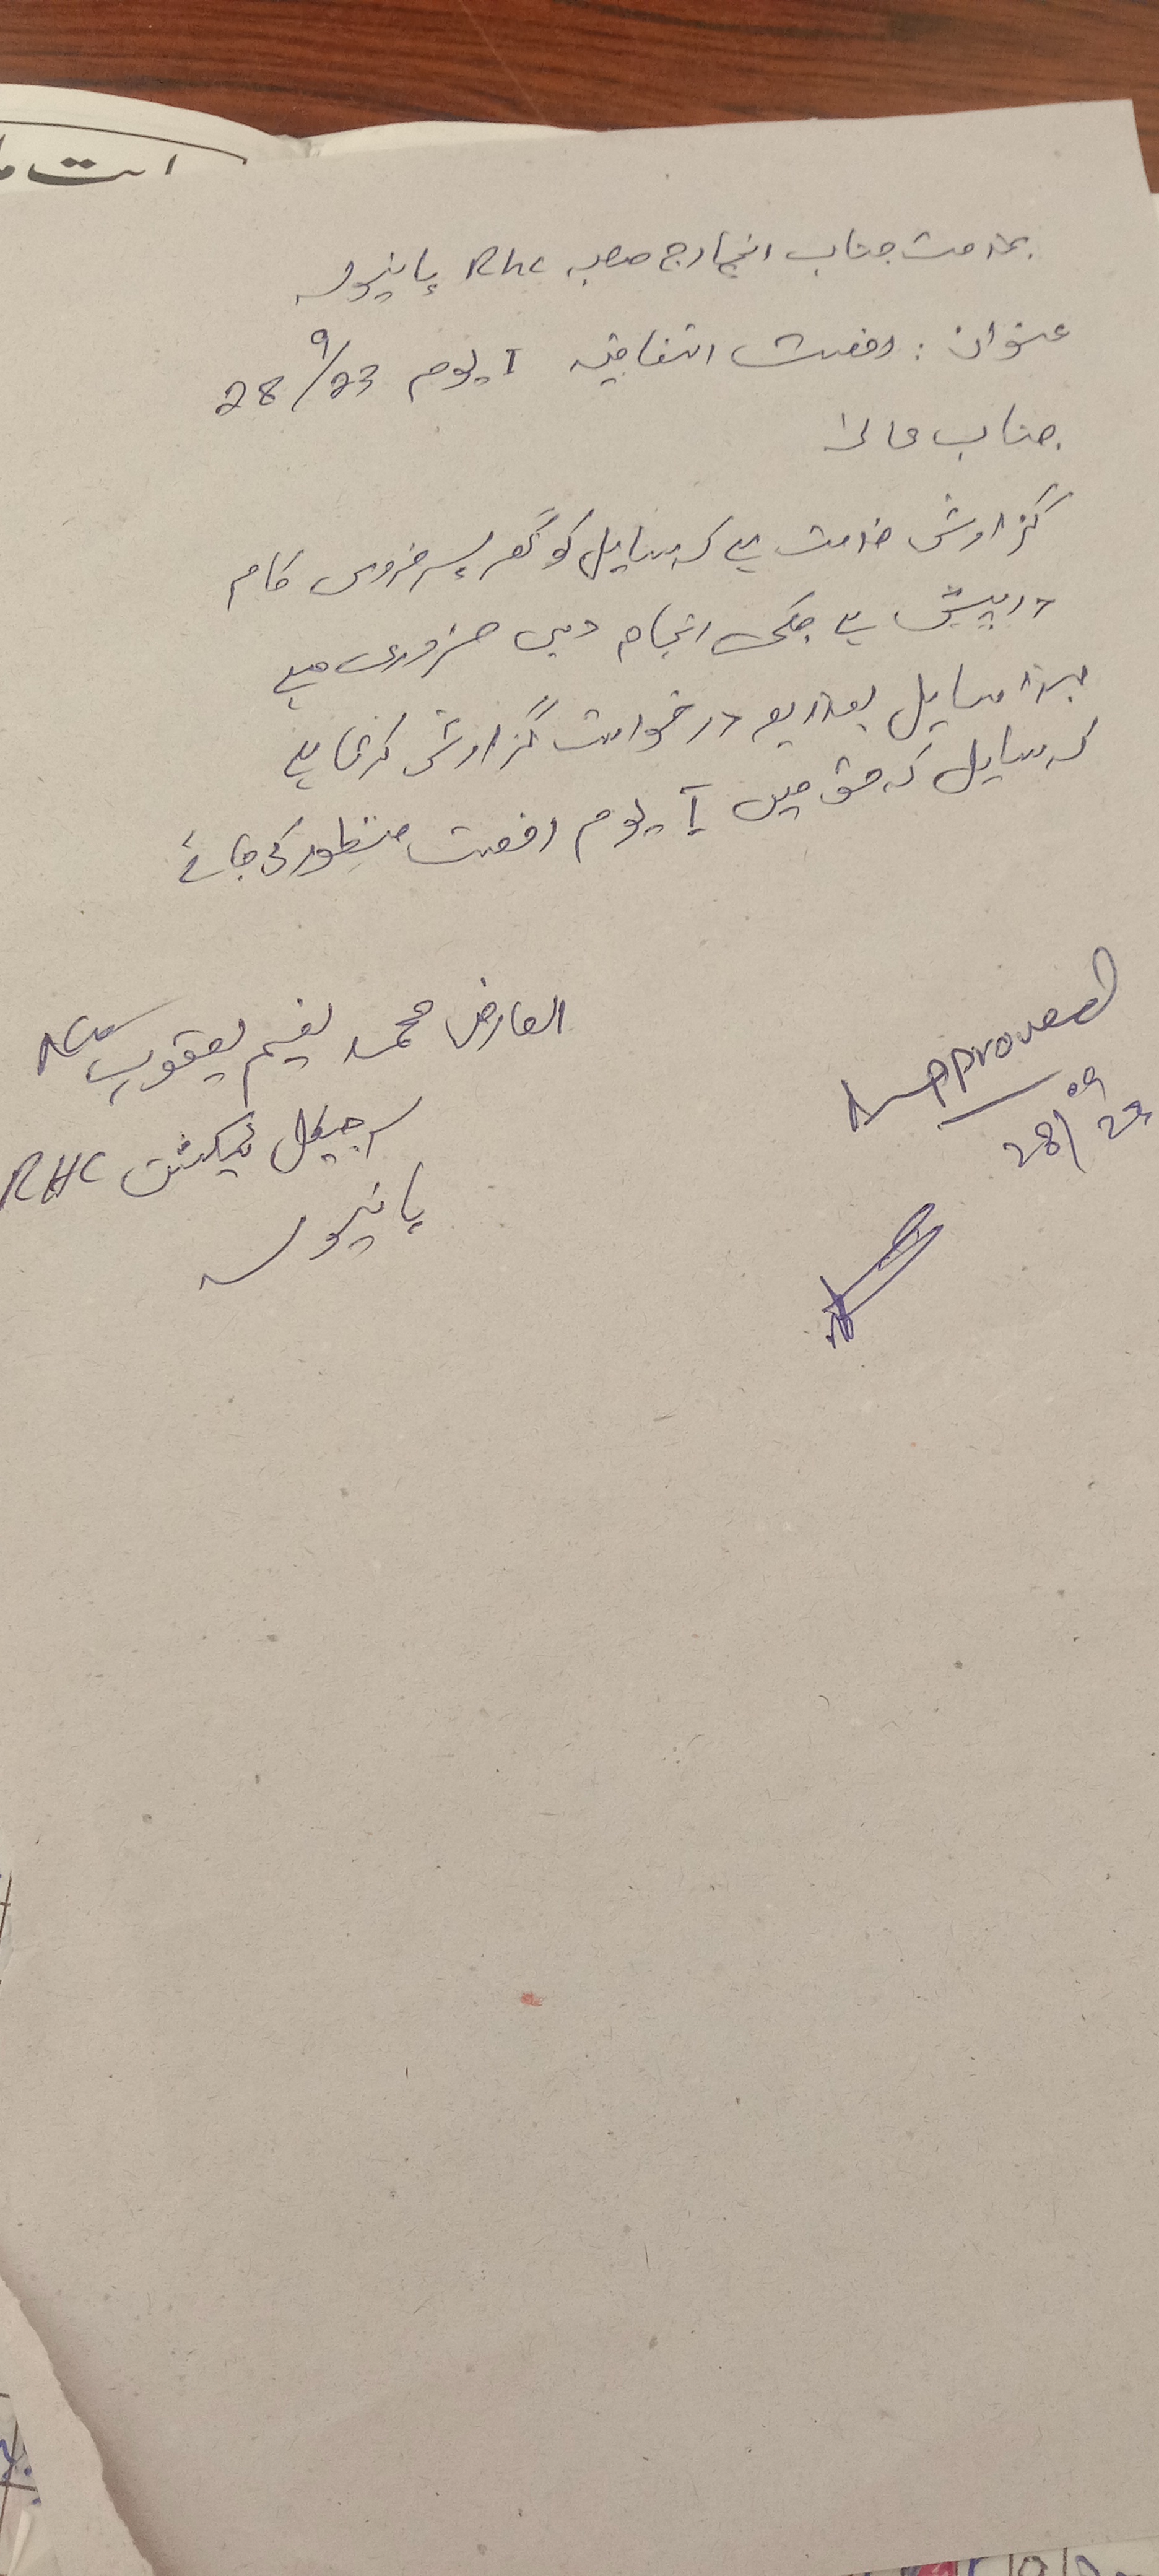 بخدمت جناب انچارج صاحب RHC پانیولہ
عنوان: رخصت اتفاقیہ 1 یوم 28/9/23
جناب عالی
گزارش خدمت ہے کہ سایل کو گھر پر ضروری کام
درپیش ہے جسکی انجام دہی ضروری ہے
لہذا سایل بعذریعہ درخواست گزارش کرتا ہے
کہ سایل کہ حق میں 1 یوم رخصت منظور کی جائے
العارض محمد نعیم یعقوب
سرجیکل ٹیکنشن RHC
پانیولہ
Approved
28/09/23